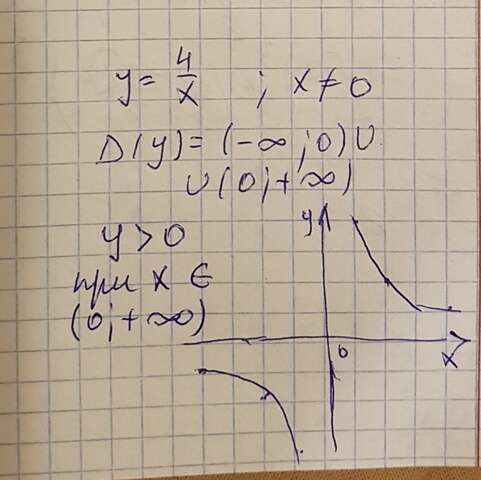 y = 4/x ; x ≠ 0
D(y) = (-∞; 0) ∪
∪ (0; +∞)
y > 0
при x ∈
(0; +∞)
y
0
x